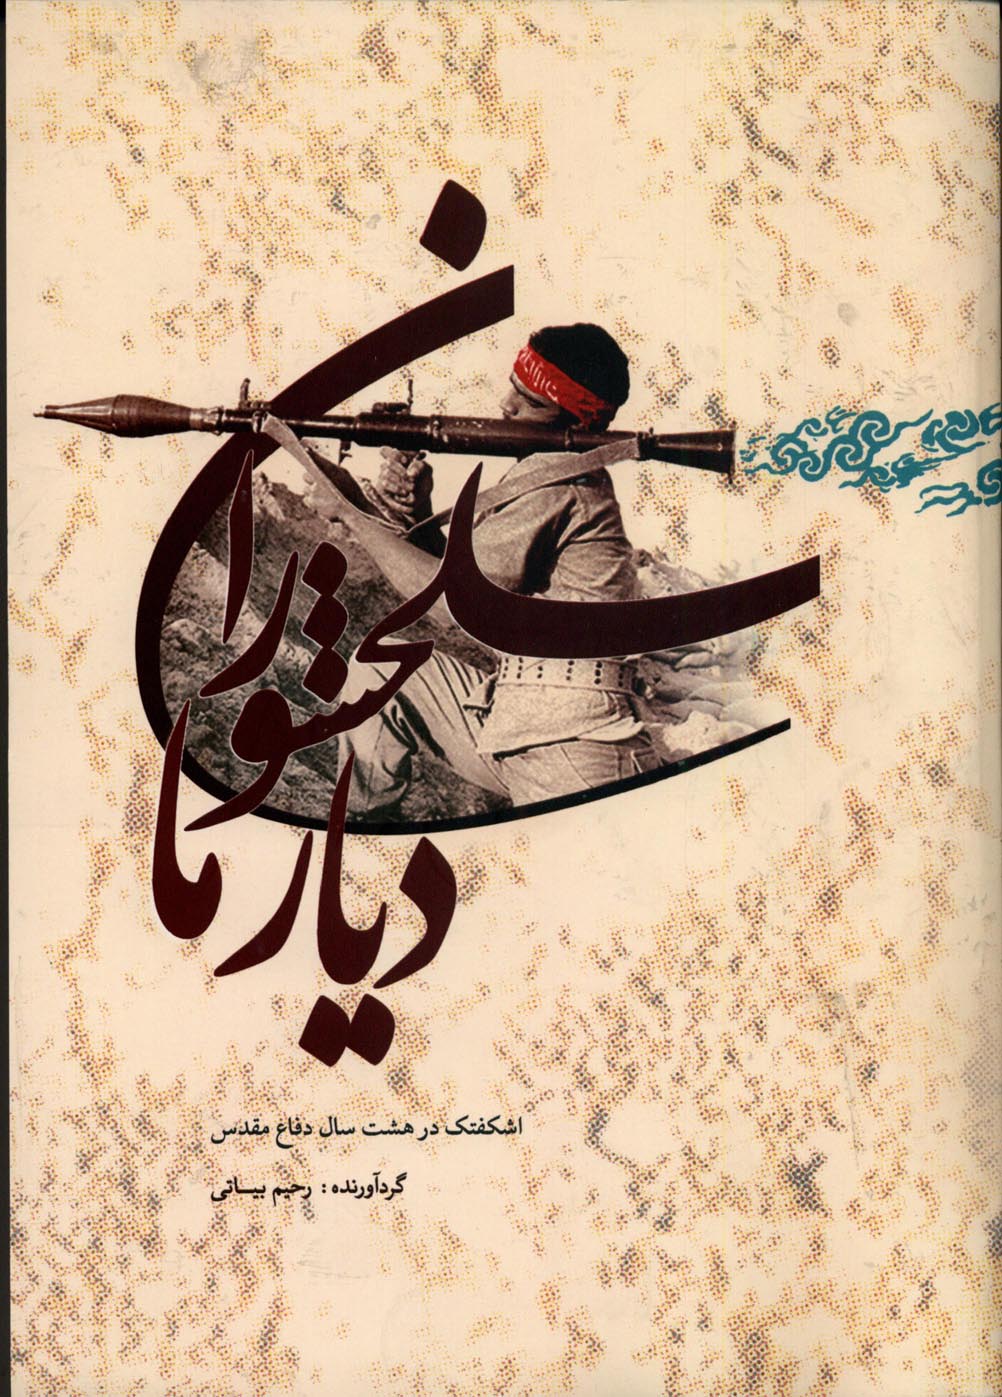 سلحشوران
دیار ما
اشکفتک در هشت سال دفاع مقدس
گردآورنده : رحیم بیاتی